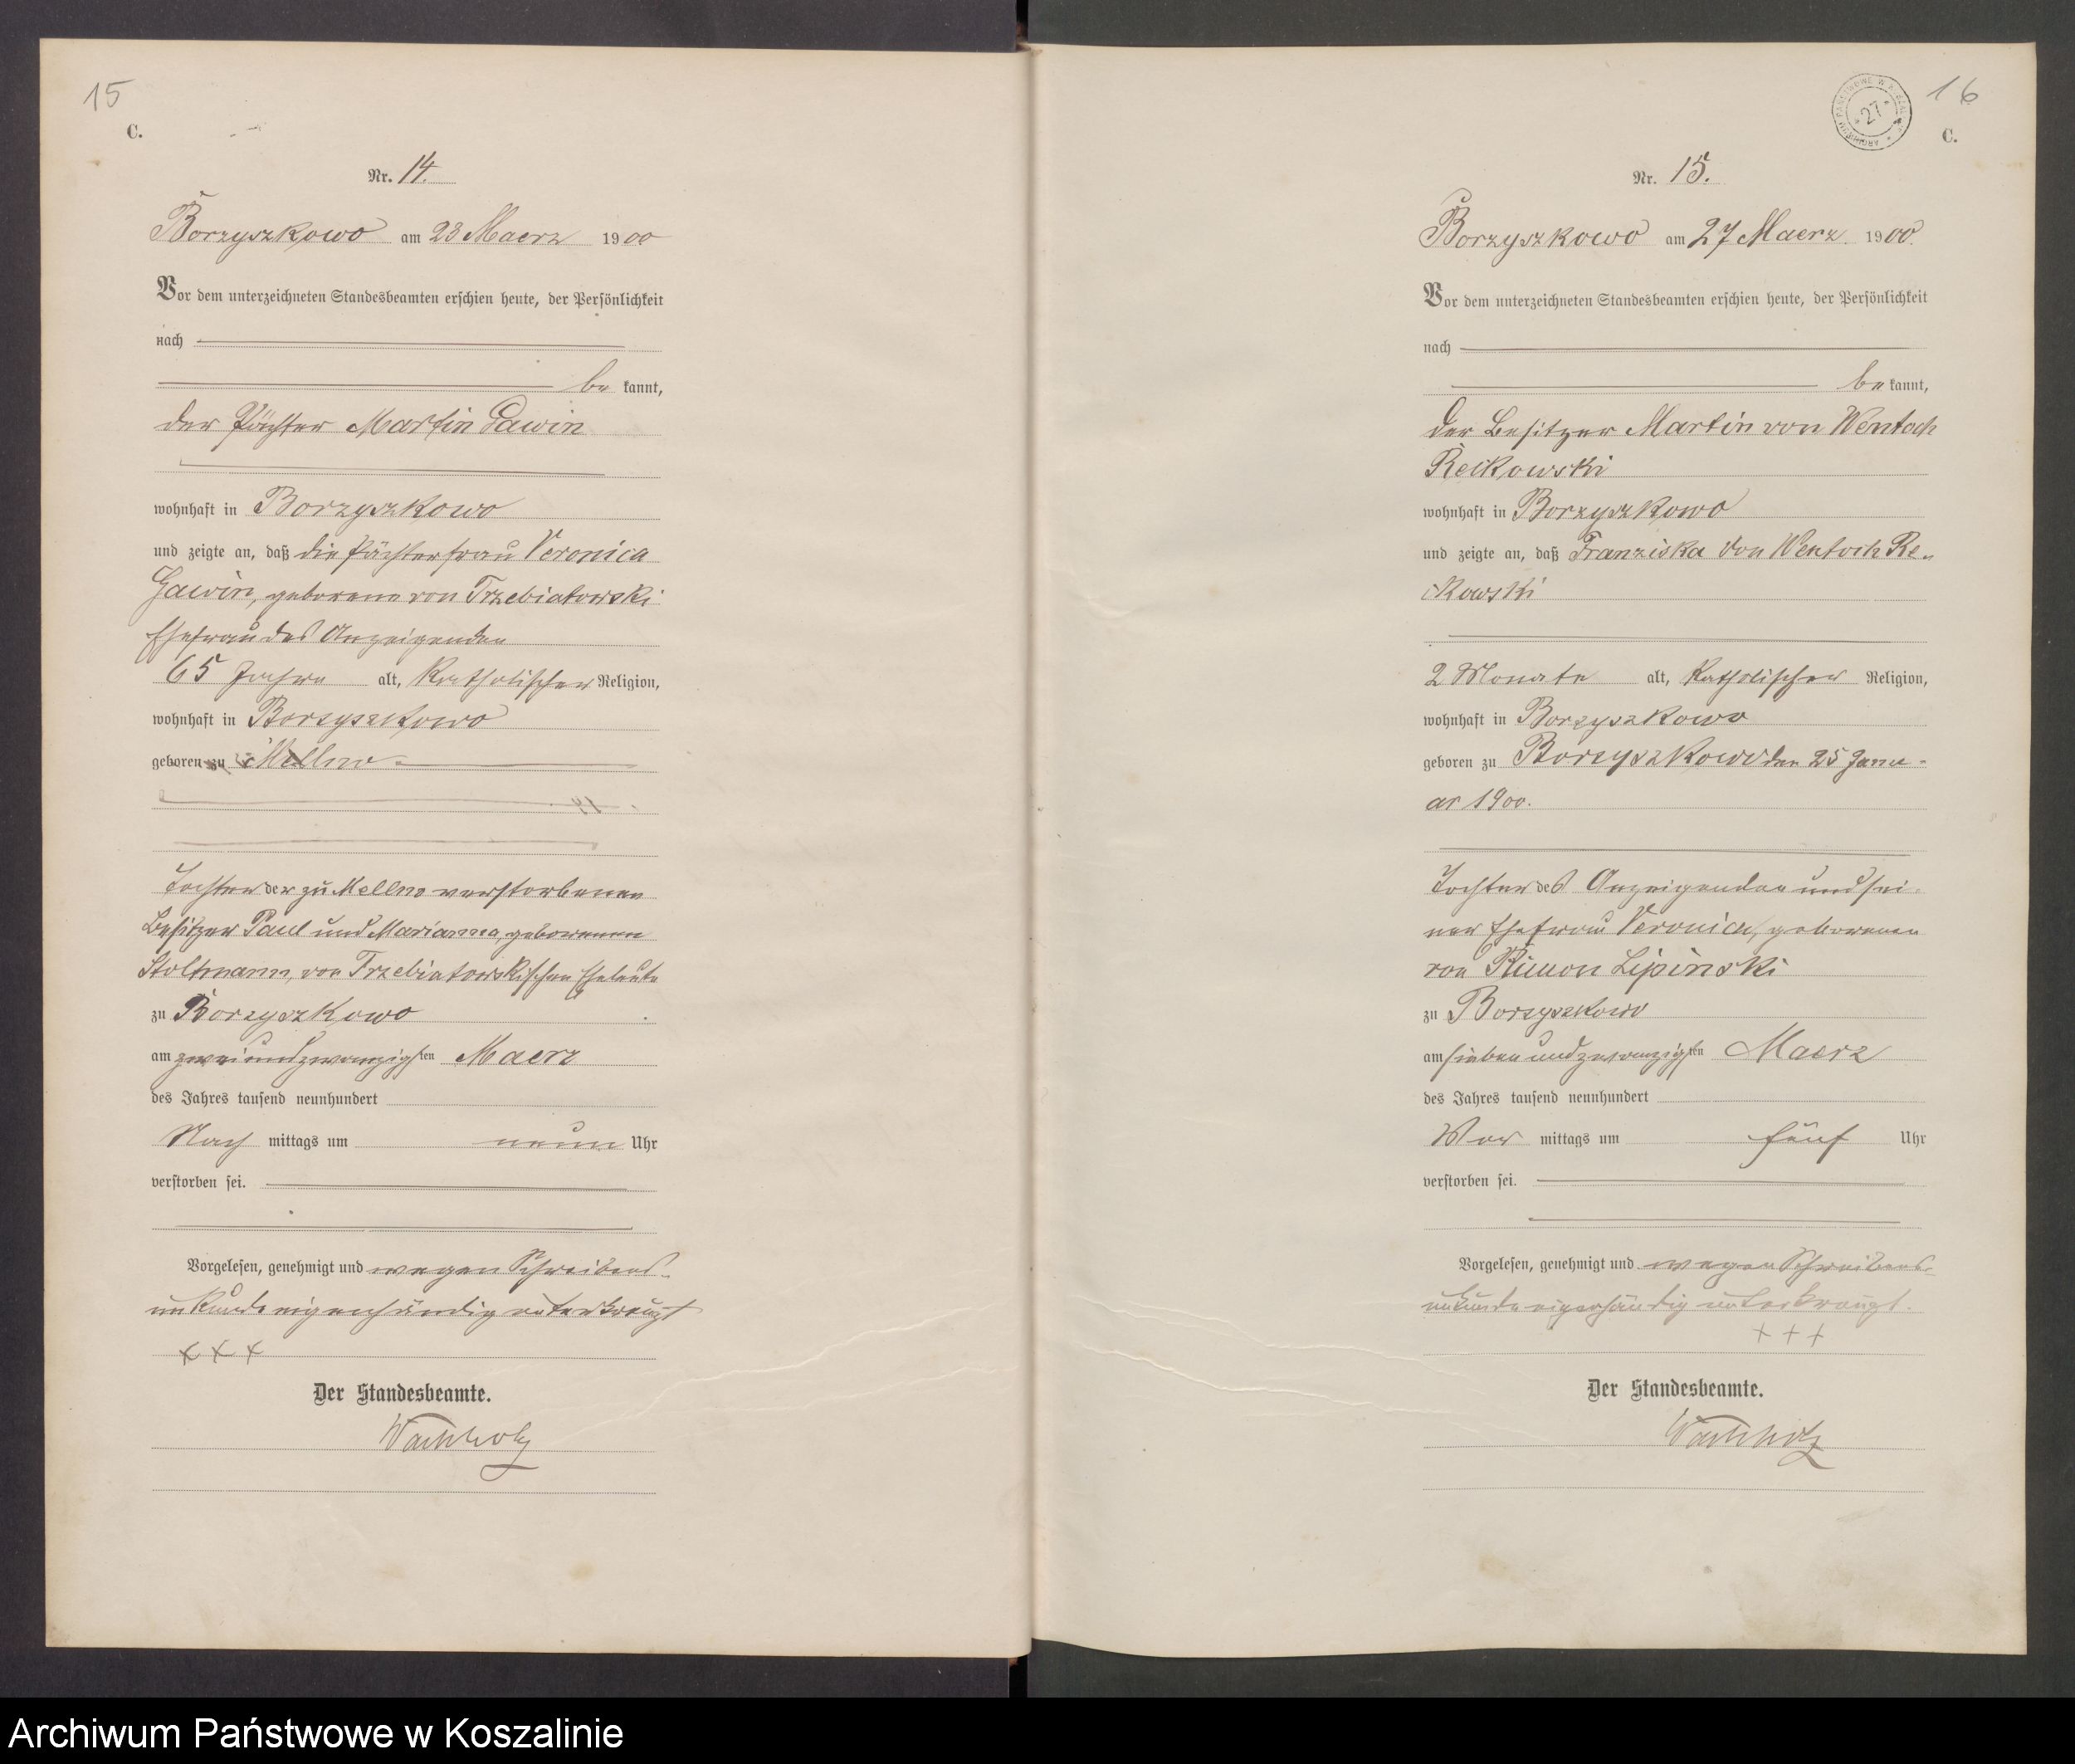 15
C.
Nr. 14.
Borzyszkowo am 23 Maerz 1900
Vor dem unterzeichneten Standesbeamten erschien heute, der Persönlichkeit
nach
be kannt,
der Pächter Martin Gawin
wohnhaft in Borzyszkowo
und zeigte an, daß die Pächterfrau Veronica
Gawin, geborene von Trzebiatowski
Ehefrau des Anzeigenden
65 Jahre alt, Katholischer Religion,
wohnhaft in Borzyszkowo
geboren zu Mellno
Tochter der zu Mellno verstorbenen
Besitzer Paul und Marianna, geborenen
Stoltmann, von Trzebiatowskischen Eheleute
zu Borzyszkowo
am zweiundzwanzigsten Maerz
des Jahres tausend neunhundert
Nach mittags um neun Uhr
verstorben sei.
Vorgelesen, genehmigt und wegen Schreibens-
unkunde eigenhändig unterkreuzt
+ + +
Der Standesbeamte.
Wachholz
16
27
C.
Nr. 15.
Borzyszkowo am 27 Maerz 1900.
Vor dem unterzeichneten Standesbeamten erschien heute, der Persönlichkeit
nach
be kannt,
der Besitzer Martin von Wentoch
Rekowski
wohnhaft in Borzyszkowo
und zeigte an, daß Franziska von Wentoch Re-
kowski
2 Monate alt, Katholischer Religion,
wohnhaft in Borzyszkowo
geboren zu Borzyszkowo den 25 Janu-
ar 1900.
Tochter des Anzeigenden und sei-
ner Ehefrau Veronica, geborenen
von Lipinski
zu Borzyszkowo
am siebenundzwanzigsten Maerz
des Jahres tausend neunhundert
Vor mittags um fünf Uhr
verstorben sei.
Vorgelesen, genehmigt und wegen Schreibens-
unkunde eigenhändig unterkreuzt.
+ + +
Der Standesbeamte.
Wachholz
Archiwum Państwowe w Koszalinie